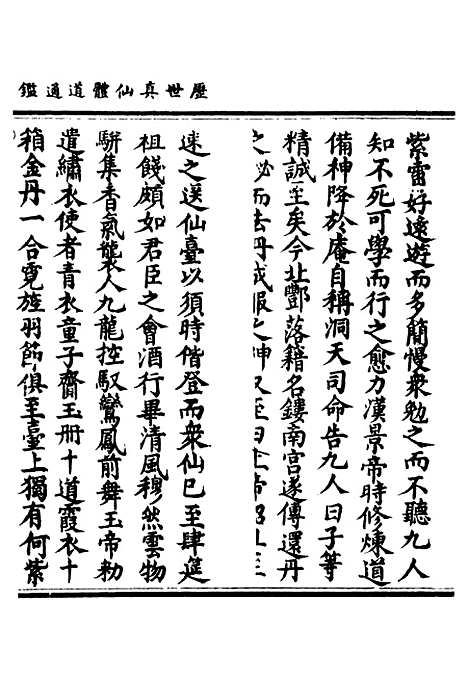 歷世真仙體道通鑑
紫霄好遠遊而多簡慢衆勉之而不聽九人
知不死可學而行之愈力漢景帝時修煉道
備神降於庵自稱洞天司命告九人曰子等
精誠至矣今北酆落籍名鏤南宮遂傳還丹
之 而去丹成服之神又至曰上帝
速之送仙臺以須時偕登而衆仙已至肆筵
祖餞頗如君臣之會酒行畢清風穆然雲物
駢集香氣襲人九龍控馭鸞鳳前舞玉帝勑
遣繡衣使者青衣童子齎玉册十道霞衣十
箱金丹一合霓旌羽節俱至臺上獨有何紫